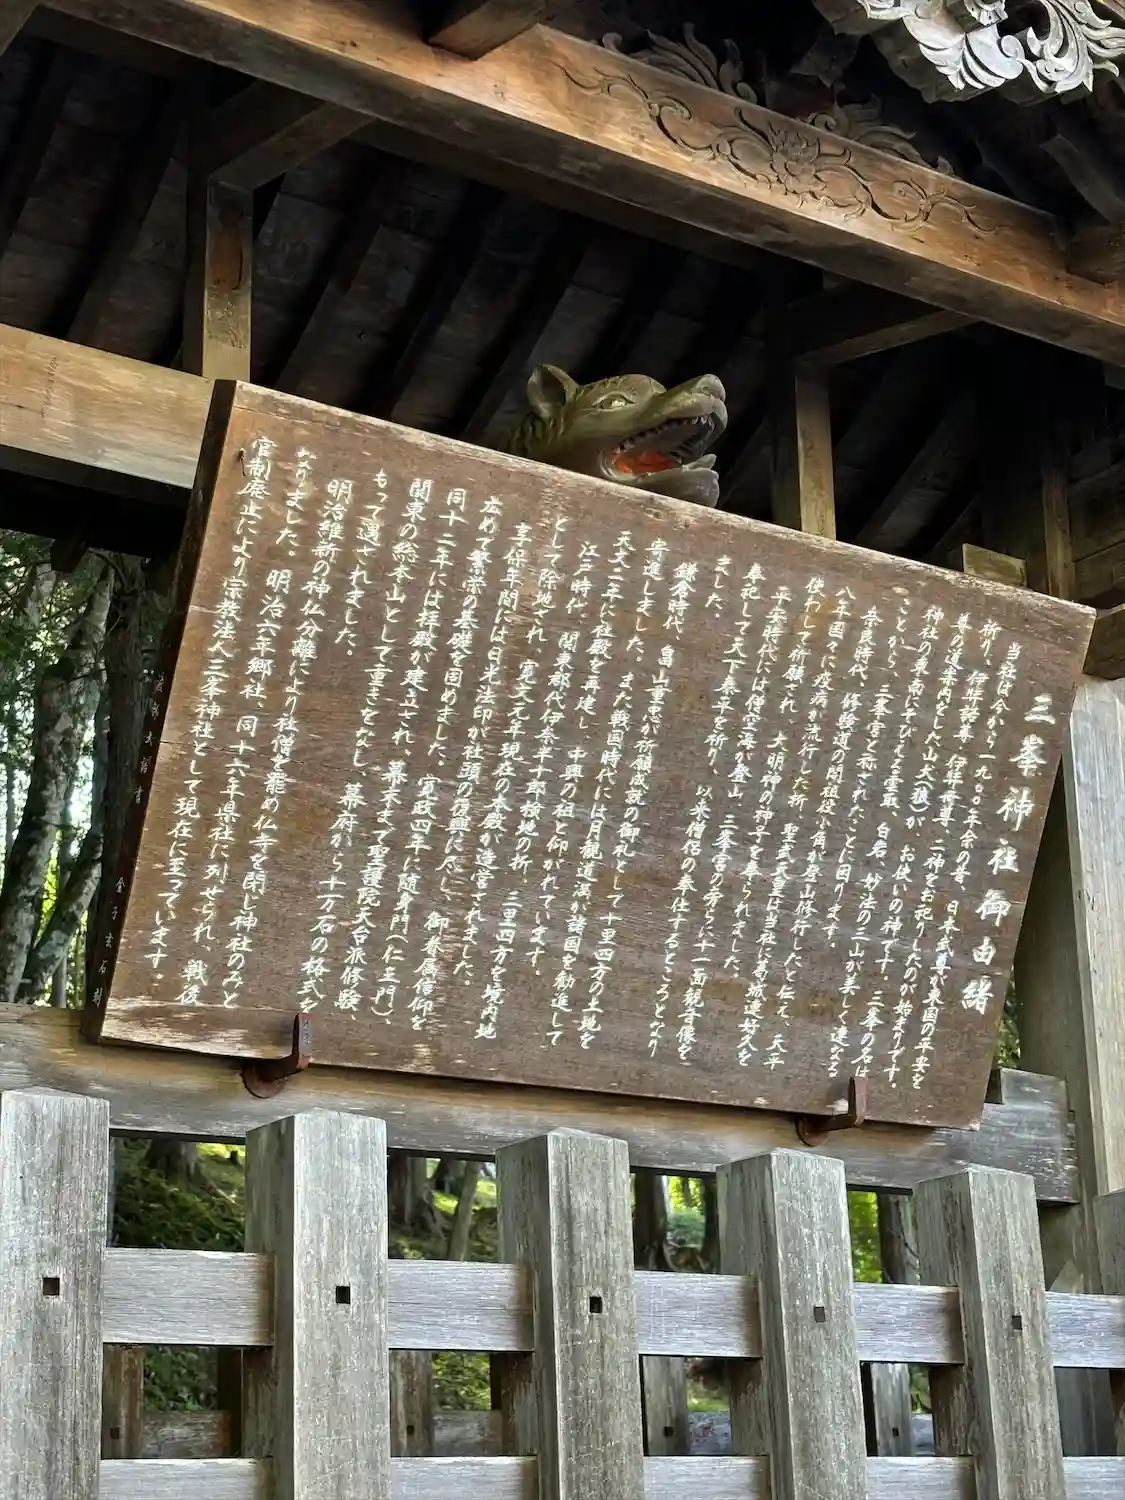 三峯神社御由緒
当社は今から一九〇〇年余の昔、日本武尊が東国の平安を
祈り、伊弉諾尊、伊弉冉尊、二神をお祀りしたのが始まりです。
尊の道案内をした山犬(狼)が、お使いの神です。三峯の名は
神社の東南にそびえる雲取、白岩、妙法の三山が美しく連なる
ことから、三峯宮と称されたことに因ります。
奈良時代、修験道の開祖役小角が登山修行したと伝え、天平
八年国々に疫病が流行した折、聖武天皇は当社に葛城連好久を
使わして祈願され、大明神の神号を奉られました。
平安時代には僧空海が登山、三峯宮の傍らに十一面観音像を
奉祀して天下泰平を祈り、以来僧侶の奉仕するところとなり
ました。
鎌倉時代、畠山重忠が祈願成就の御礼として十里四方の土地を
寄進しました。また戦国時代には月観道満が諸国を勧進して
天文二年に社殿を再建し、中興の祖と仰がれています。
江戸時代、関東郡代伊奈半十郎検地の折、三里四方を境内地
として除地され、寛文元年現在の本殿が造営されました。
享保年間には日光法印が社頭の復興に尽し、御眷属信仰を
広めて繁栄の基礎を固めました。寛政四年に随身門(仁王門)、
同十二年には拝殿が建立され、幕末まで聖護院天台派修験、
関東の総本山として重きをなし、幕府から十万石の格式を
もって遇されました。
明治維新の神仏分離により社僧を罷め仏寺を閉じ神社のみと
なりました。明治六年郷社、同十六年県社に列せられ、戦後
官制廃止により宗教法人三峯神社として現在に至っています。